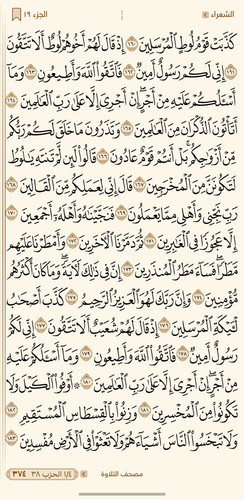 الشعراء
الجزء ١٩
كَذَّبَتْ قَوْمُ لُوطٍ ٱلْمُرْسَلِينَ ١٦٠ إِذْ قَالَ لَهُمْ أَخُوهُمْ لُوطٌ أَلَا تَتَّقُونَ
١٦١ إِنِّي لَكُمْ رَسُولٌ أَمِينٌ ١٦٢ فَٱتَّقُوا۟ ٱللَّهَ وَأَطِيعُونِ ١٦٣ وَمَآ
أَسْـَٔلُكُمْ عَلَيْهِ مِنْ أَجْرٍ إِنْ أَجْرِىَ إِلَّا عَلَىٰ رَبِّ ٱلْعَـٰلَمِينَ ١٦٤
أَتَأْتُونَ ٱلذُّكْرَانَ مِنَ ٱلْعَـٰلَمِينَ ١٦٥ وَتَذَرُونَ مَا خَلَقَ لَكُمْ رَبُّكُم
مِّنْ أَزْوَٰجِكُم بَلْ أَنتُمْ قَوْمٌ عَادُونَ ١٦٦ قَالُوا۟ لَئِن لَّمْ تَنتَهِ يَـٰلُوطُ
لَتَكُونَنَّ مِنَ ٱلْمُخْرَجِينَ ١٦٧ قَالَ إِنِّى لِعَمَلِكُم مِّنَ ٱلْقَالِينَ ١٦٨
رَبِّ نَجِّنِى وَأَهْلِى مِمَّا يَعْمَلُونَ ١٦٩ فَنَجَّيْنَـٰهُ وَأَهْلَهُۥٓ أَجْمَعِينَ ١٧٠
إِلَّا عَجُوزًا فِى ٱلْغَـٰبِرِينَ ١٧١ ثُمَّ دَمَّرْنَا ٱلْـَٔاخَرِينَ ١٧٢ وَأَمْطَرْنَا عَلَيْهِم
مَّطَرًا فَسَآءَ مَطَرُ ٱلْمُنذَرِينَ ١٧٣ إِنَّ فِى ذَٰلِكَ لَـَٔايَةً وَمَا كَانَ أَكْثَرُهُم
مُّؤْمِنِينَ ١٧٤ وَإِنَّ رَبَّكَ لَهُوَ ٱلْعَزِيزُ ٱلرَّحِيمُ ١٧٥ كَذَّبَ أَصْحَـٰبُ
لْـَٔيْكَةِ ٱلْمُرْسَلِينَ ١٧٦ إِذْ قَالَ لَهُمْ شُعَيْبٌ أَلَا تَتَّقُونَ ١٧٧ إِنِّى لَكُمْ
رَسُولٌ أَمِينٌ ١٧٨ فَٱتَّقُوا۟ ٱللَّهَ وَأَطِيعُونِ ١٧٩ وَمَآ أَسْـَٔلُكُمْ عَلَيْهِ
مِنْ أَجْرٍ إِنْ أَجْرِىَ إِلَّا عَلَىٰ رَبِّ ٱلْعَـٰلَمِينَ ١٨٠ ۞ أَوْفُوا۟ ٱلْكَيْلَ وَلَا
تَكُونُوا۟ مِنَ ٱلْمُخْسِرِينَ ١٨١ وَزِنُوا۟ بِٱلْقِسْطَاسِ ٱلْمُسْتَقِيمِ ١٨٢
وَلَا تَبْخَسُوا۟ ٱلنَّاسَ أَشْيَآءَهُمْ وَلَا تَعْثَوْا۟ فِى ٱلْأَرْضِ مُفْسِدِينَ ١٨٣
مصحف التلاوة
١/٤ الحزب ٣٨
٣٧٤